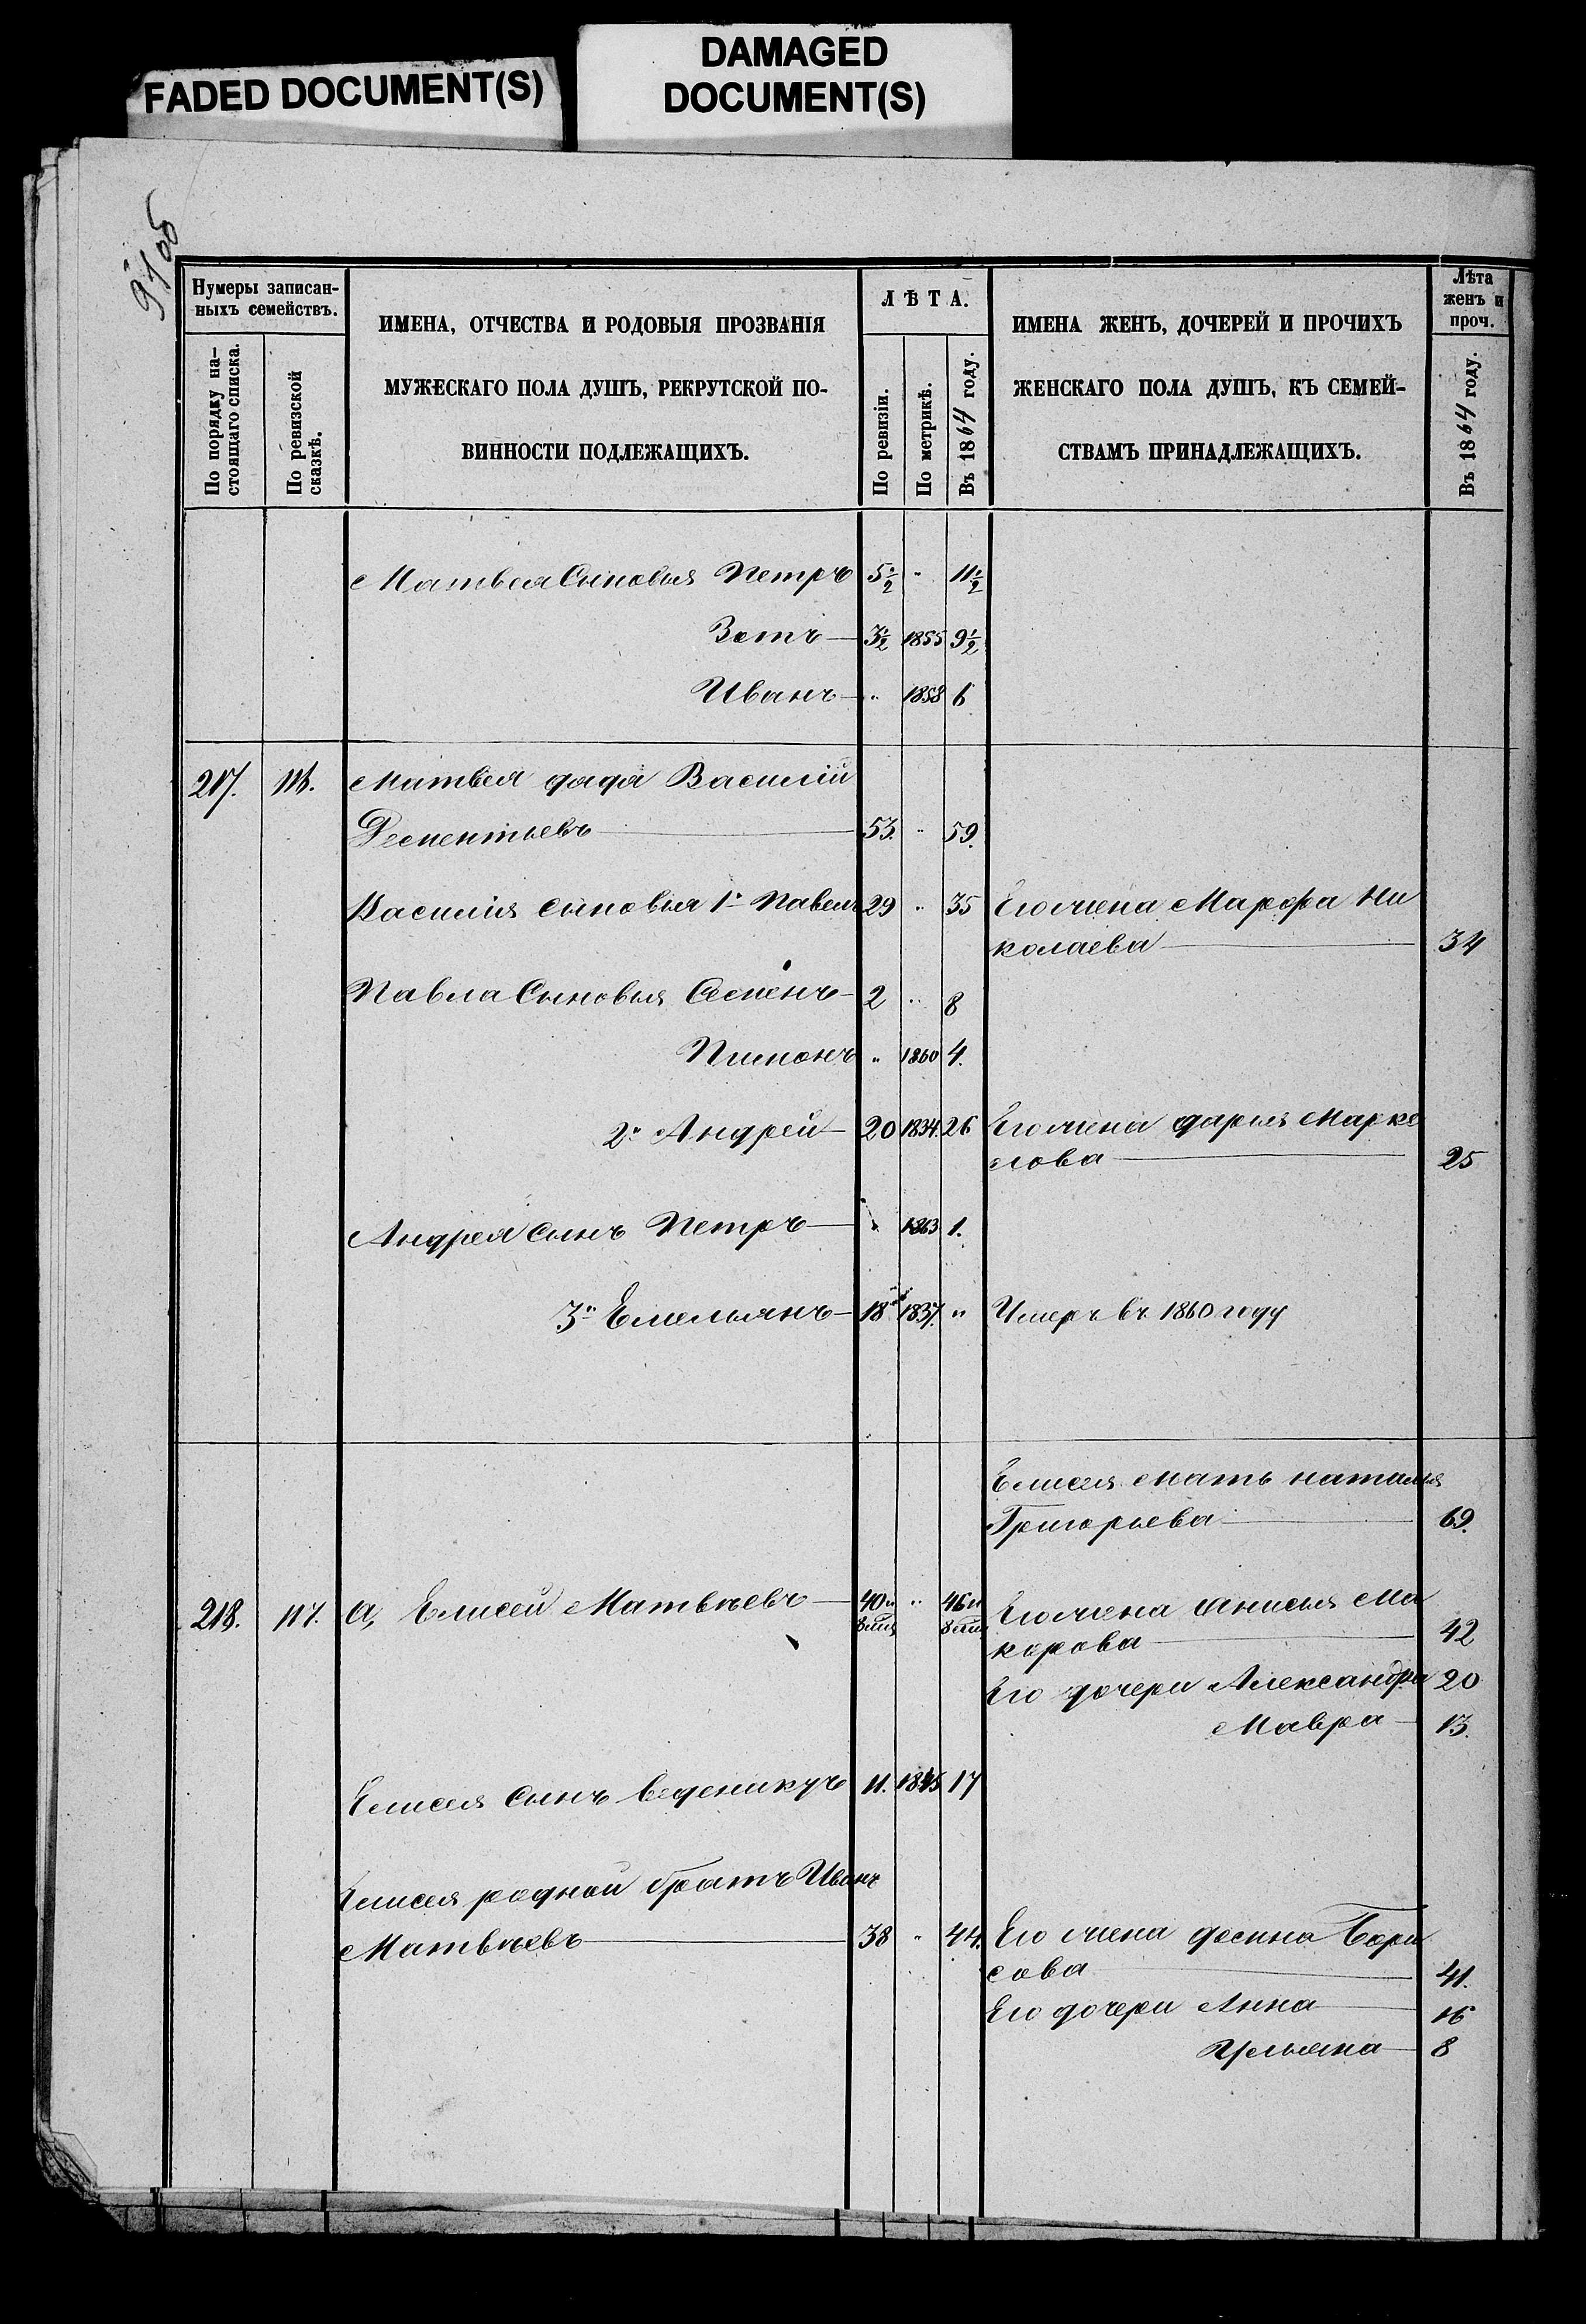 FADED DOCUMENT(S)
DAMAGED
DOCUMENT(S)
91 об
Нумеры записан-
ныхъ семействъ.
По порядку на-
стоящаго списка.
По ревизской
сказкѣ.
ИМЕНА, ОТЧЕСТВА И РОДОВЫЯ ПРОЗВАНІЯ
МУЖЕСКАГО ПОЛА ДУШЪ, РЕКРУТСКОЙ ПО-
ВИННОСТИ ПОДЛЕЖАЩИХЪ.
ЛѢТА.
По ревизіи.
По метрикѣ.
Въ 1864 году.
ИМЕНА ЖЕНЪ, ДОЧЕРЕЙ И ПРОЧИХЪ
ЖЕНСКАГО ПОЛА ДУШЪ, КЪ СЕМЕЙ-
СТВАМЪ ПРИНАДЛЕЖАЩИХЪ.
Лѣта
женъ и
проч.
Въ 1864 году.
Матвея Сыновья Петръ 5½ " 11½
Зотъ 3½ 1855 9½
Иванъ " 1858 6
217. 116. Матвея дядя Василій
53. " 59.
Василія сыновья 1й Павелъ 29 " 35 Его жена Марфа Ни
колаева 34
Павла Сыновья 2 " 8
Пименъ " 1860 4.
2й Андрей 20 1834. 26 Его жена дарья Марке
лова 25
Андрея сынъ Петръ " 1863 1.
3й Емельянъ 18 1837. " Умеръ въ 1860 году
Елисея мать наталья
Григорьева 69.
218. 117. а, Елисей Матвѣевъ 40 " 46 Его жена Анисья Ма
карова 42
Его дочери Александра 20
Мавра 13.
Елисея сынъ 11. 1845 17
Елисея родной братъ Иванъ
Матвѣевъ 38 " 44. Его жена Бори
сова 41.
Его дочери Анна 16
Ульяна 8